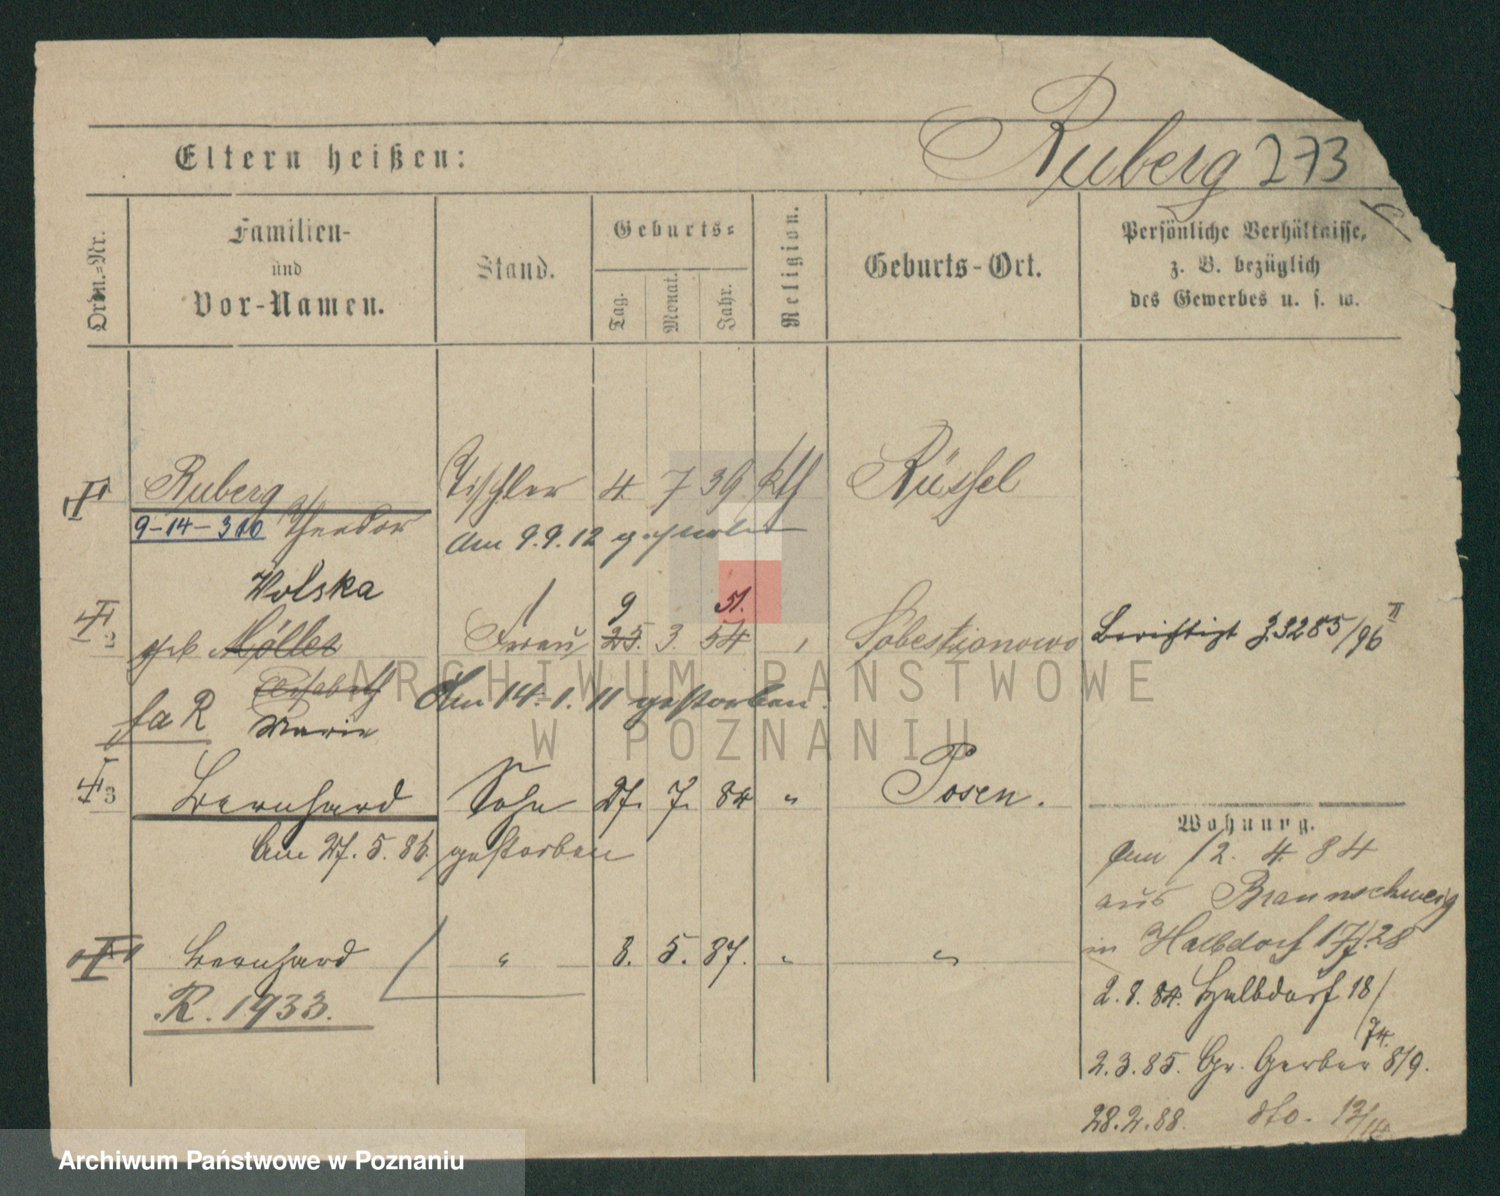 Eltern heißen:
Ruberg 273
Ordn.=Nr.
Familien-
und
Vor-Namen.
Stand.
Geburts=
Tag.
Monat.
Jahr.
Religion.
Geburts-Ort.
Persönliche Verhältnisse,
z. B. bezüglich
des Gewerbes u. s. w.
Ruberg Tischler 4 7 39 kth Rüssel
9-14-310 Theodor
Am 9.9.12 gestorben
Wolska
9 51.
2 geb Möller Frau 25. 3. 54 Sobestianowo Berichtigt J. 3285/96 II
Elisabeth Am 14.1.11 gestorben.
fa R Marie
3 Bernhard Sohn 27. 7. 84 " Posen.
Am 27.5.86. gestorben
Wohnung.
Am 12. 4. 84
aus Braunschweig
Bernhard " 8. 5. 87. " "
in Halbdorf
R. 1933.
2.8.84. Halbdorf 18/
74.
2.3.85. Gr. Gerber 8/9.
28.2.88. dto.
ARCHIWUM PAŃSTWOWE
W POZNANIU
Archiwum Państwowe w Poznaniu